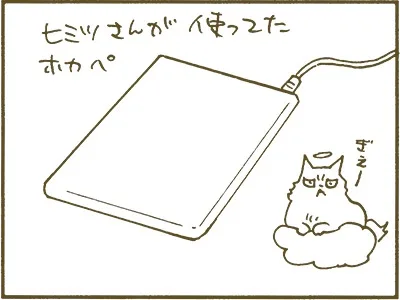 ヒミツさんが使ってた
ホカペ
ぎぇー